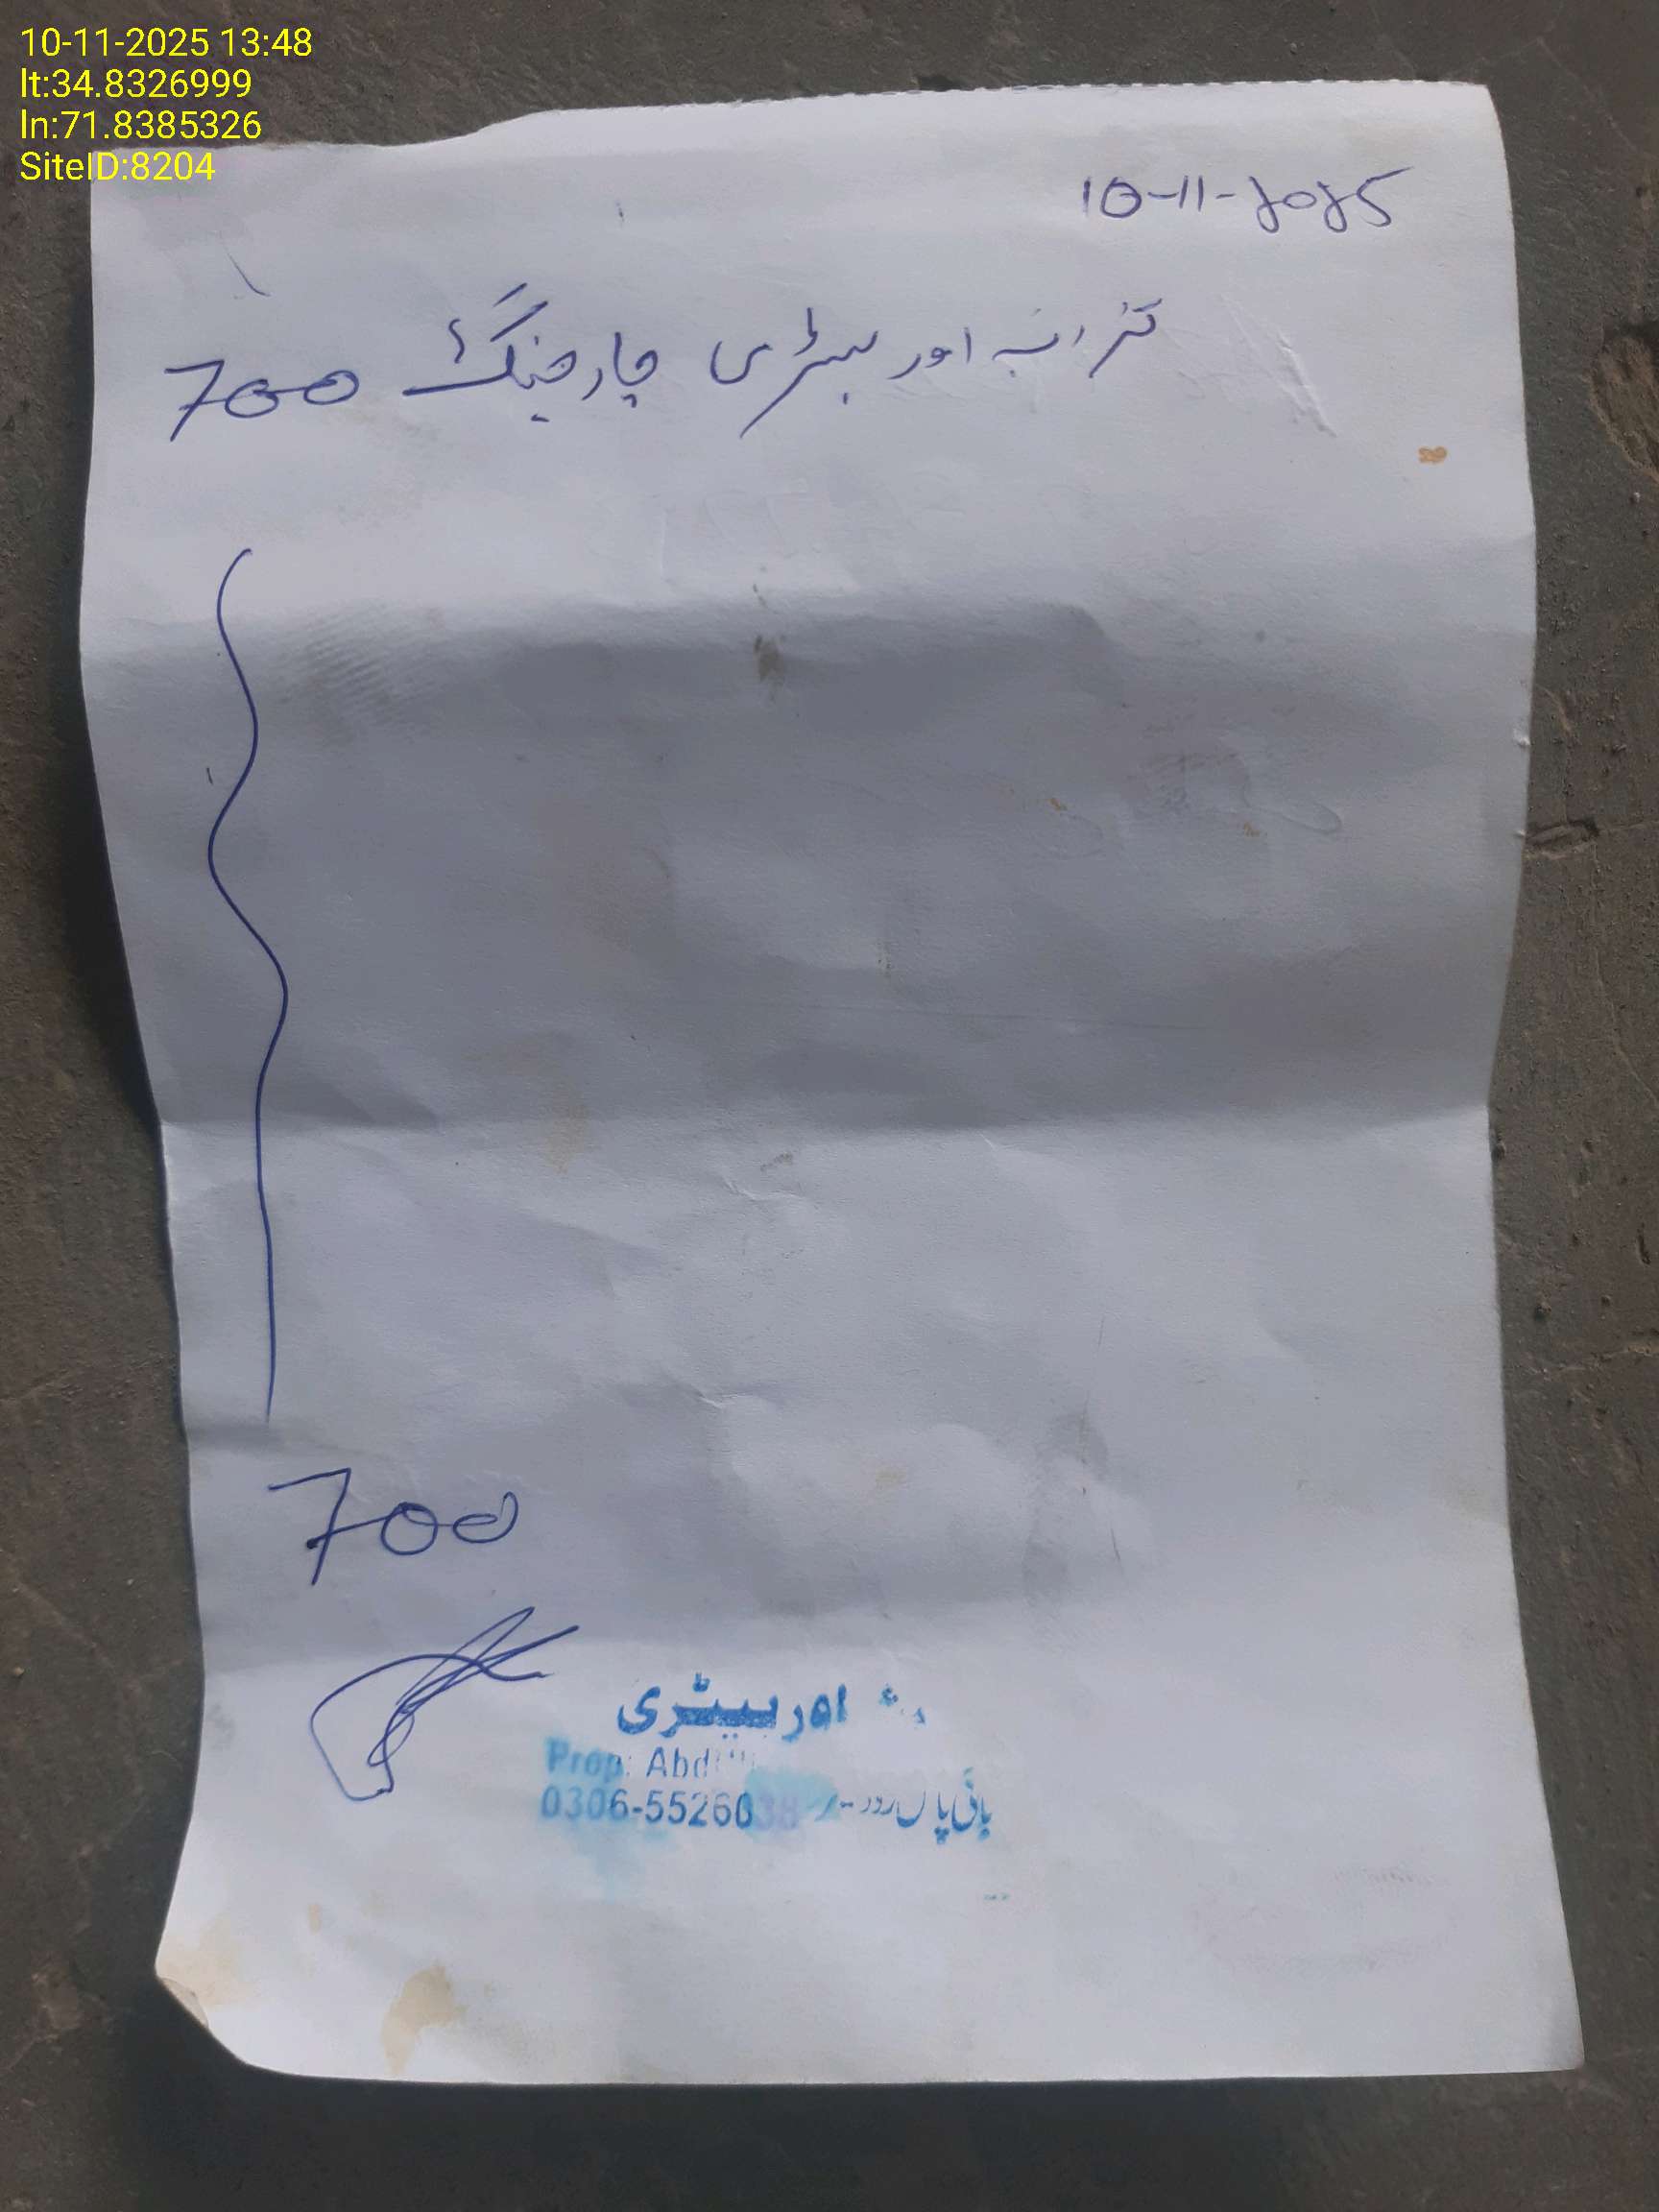 10-11-2025 13:48
lt:34.8326999
ln:71.8385326
SiteID:8204
10-11-2025
اور بیٹری چارجنگ 700
700
اور بیٹری
Prop: Abd
0306-5526038
بائی پاس روڈ